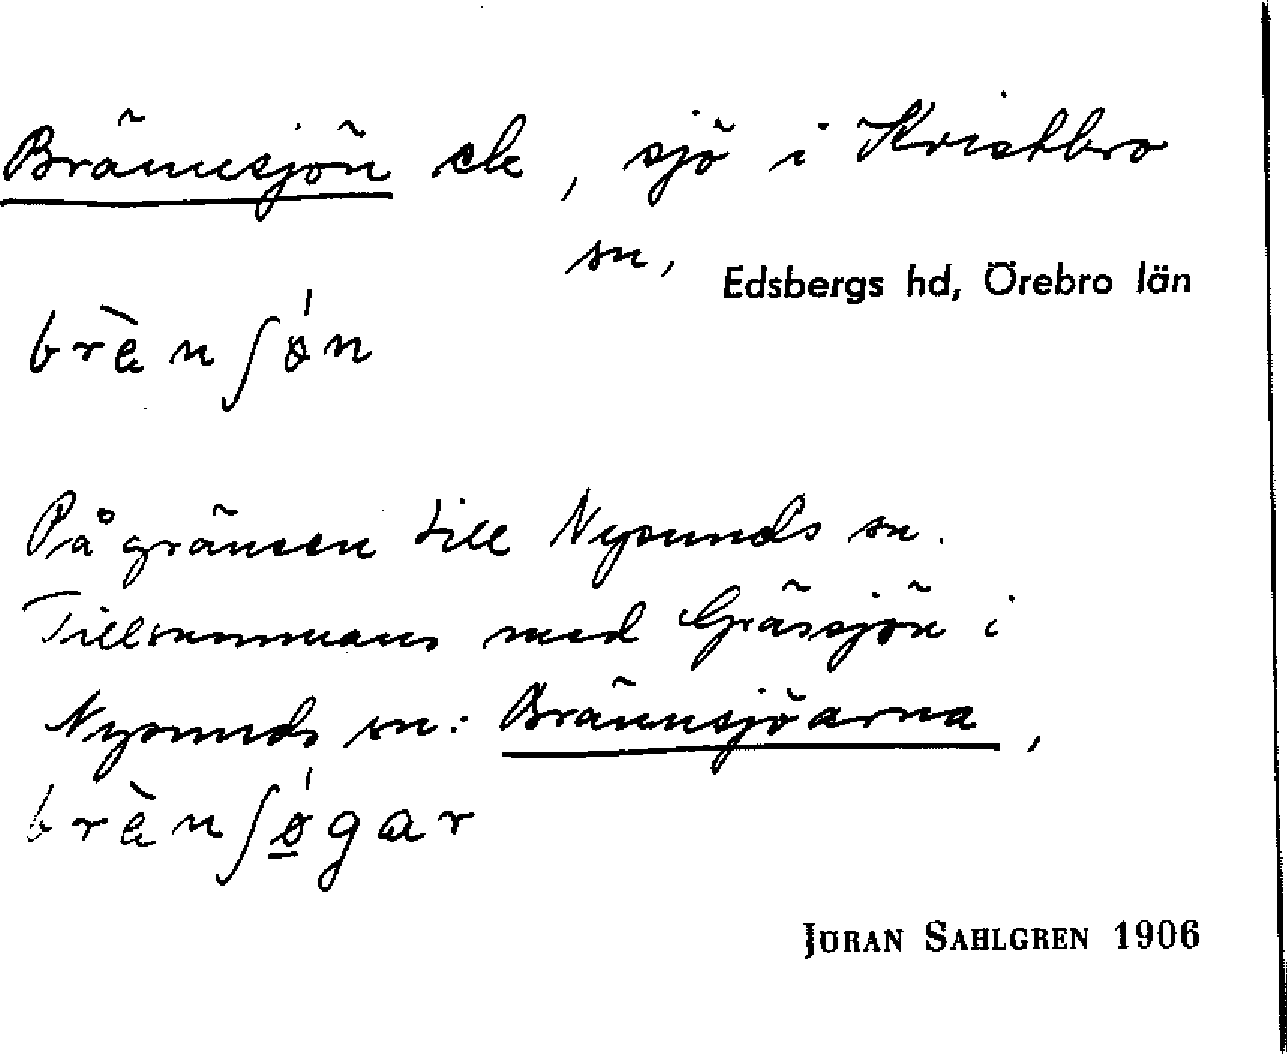 Brännsjön ek, sjö i Kvistbro
sn,
Edsbergs hd, Örebro län
brὲnʃǿn
På gränsen till Nysunds sn.
Tillsammans med Gräsjön i
Nysunds sn: Brännsjöarna,
brὲnʃǿ̱gar
JÖRAN SAHLGREN 1906